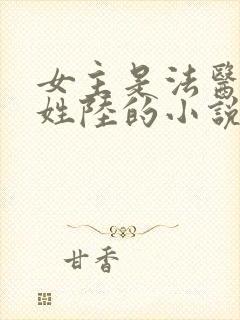 女主是法醫
姓陸的小說
甘香